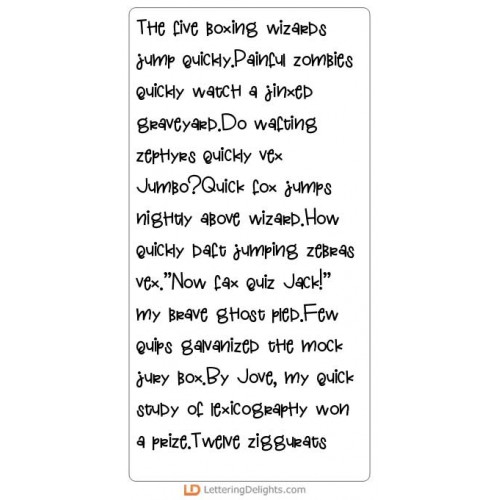 The five boxing wizards
jump quickly.Painful zombies
quickly watch a jinxed
graveyard.Do wafting
zephyrs quickly vex
Jumbo?Quick fox jumps
nightly above wizard.How
quickly daft jumping zebras
vex."Now fax quiz Jack!"
my brave ghost pled.Few
quips galvanized the mock
jury box.By Jove, my quick
study of lexicography won
a prize.Twelve ziggurats
LD LetteringDelights.com